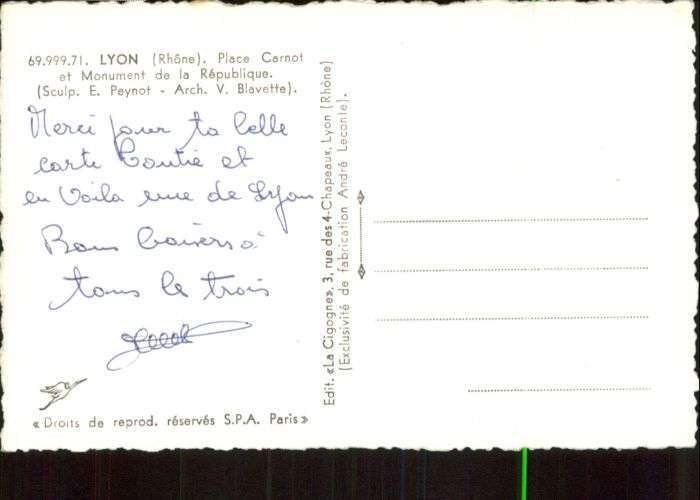 69.999.71. LYON (Rhône). Place Carnot
et Monument de la République.
(Sculp. E. Peynot - Arch. V. Blavette).
Merci pour ta belle
carte et
en voila une de Lyon
Bons baisers à
tous les trois
« Droits de reprod. réservés S.P.A. Paris »
Edit. «La Cigogne», 3, rue des 4-Chapeaux, Lyon (Rhône)
(Exclusivité de fabrication André Leconte).